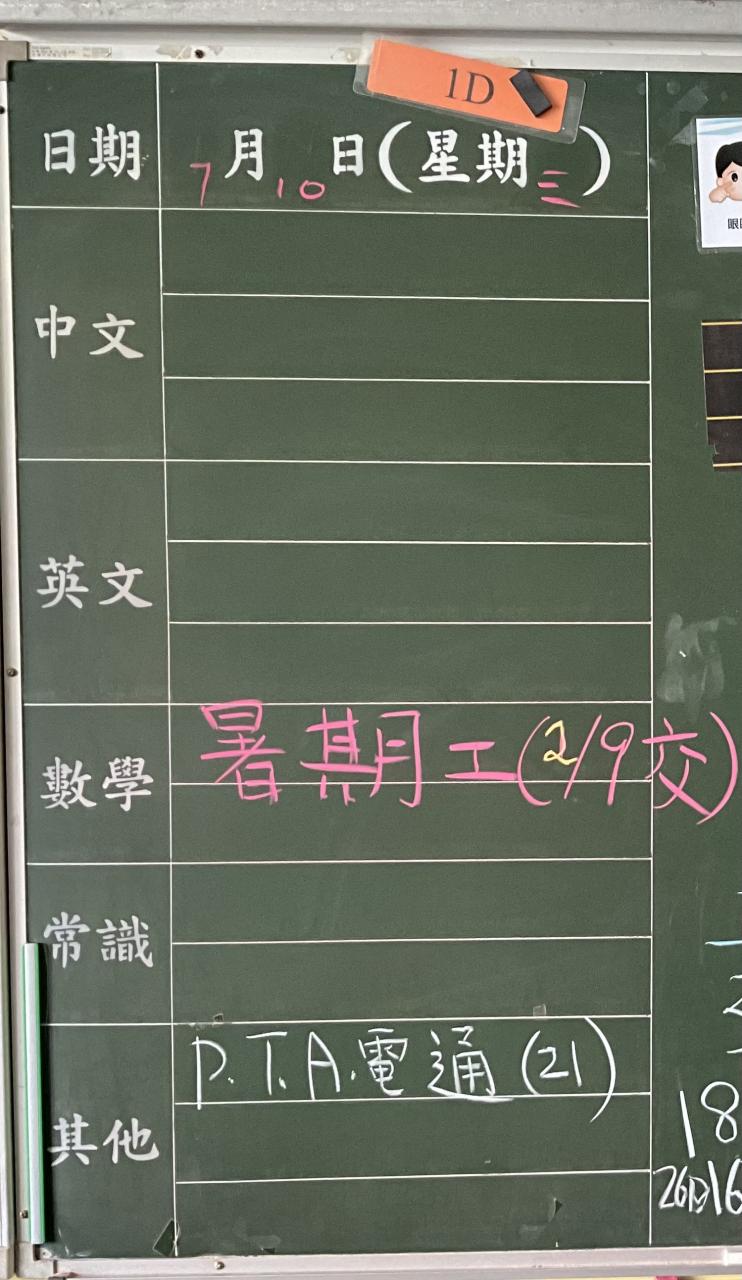 1D
日期 7月10日(星期三)
中文
英文
數學 暑期工(2/9交)
常識
其他 P.T.A.電通(21)
18